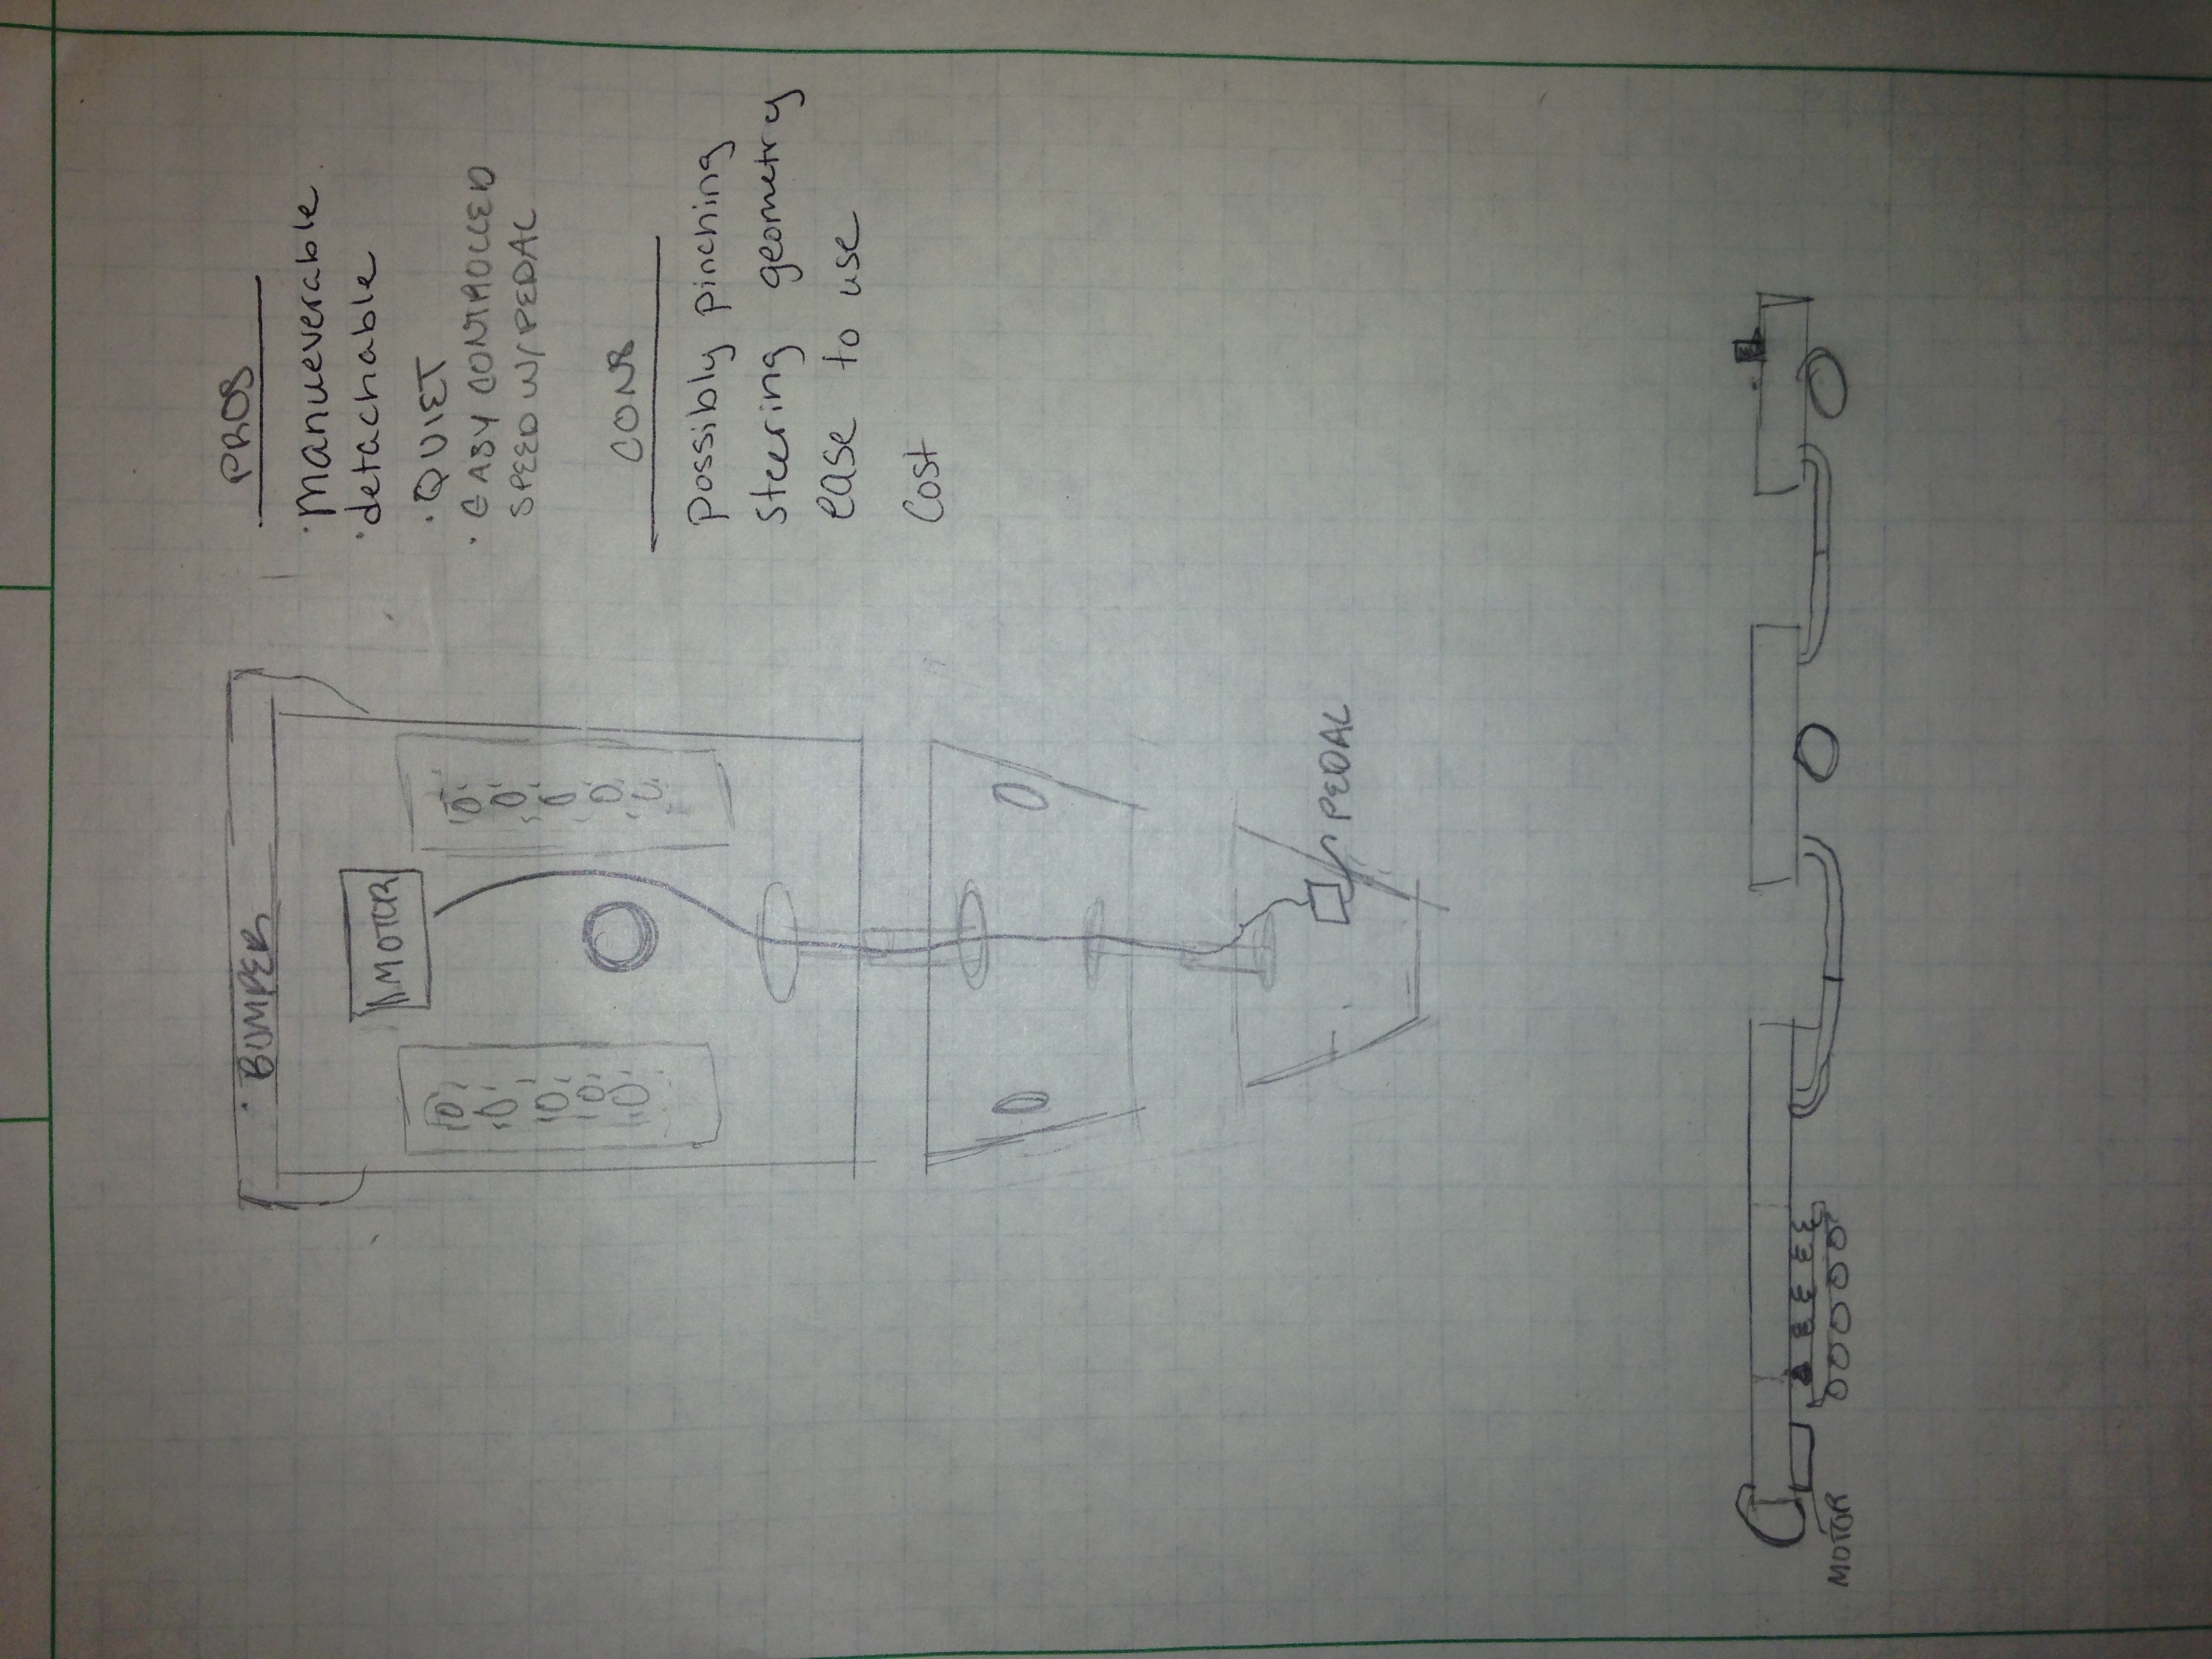 · BUMPER
MOTOR
PEDAL
MOTOR
PROS
· Manueverable
· detachable
· QUIET
· EASY CONTROLLED
SPEED W/ PEDAL
CONS
Possibly pinching
Steering geometry
ease to use
Cost